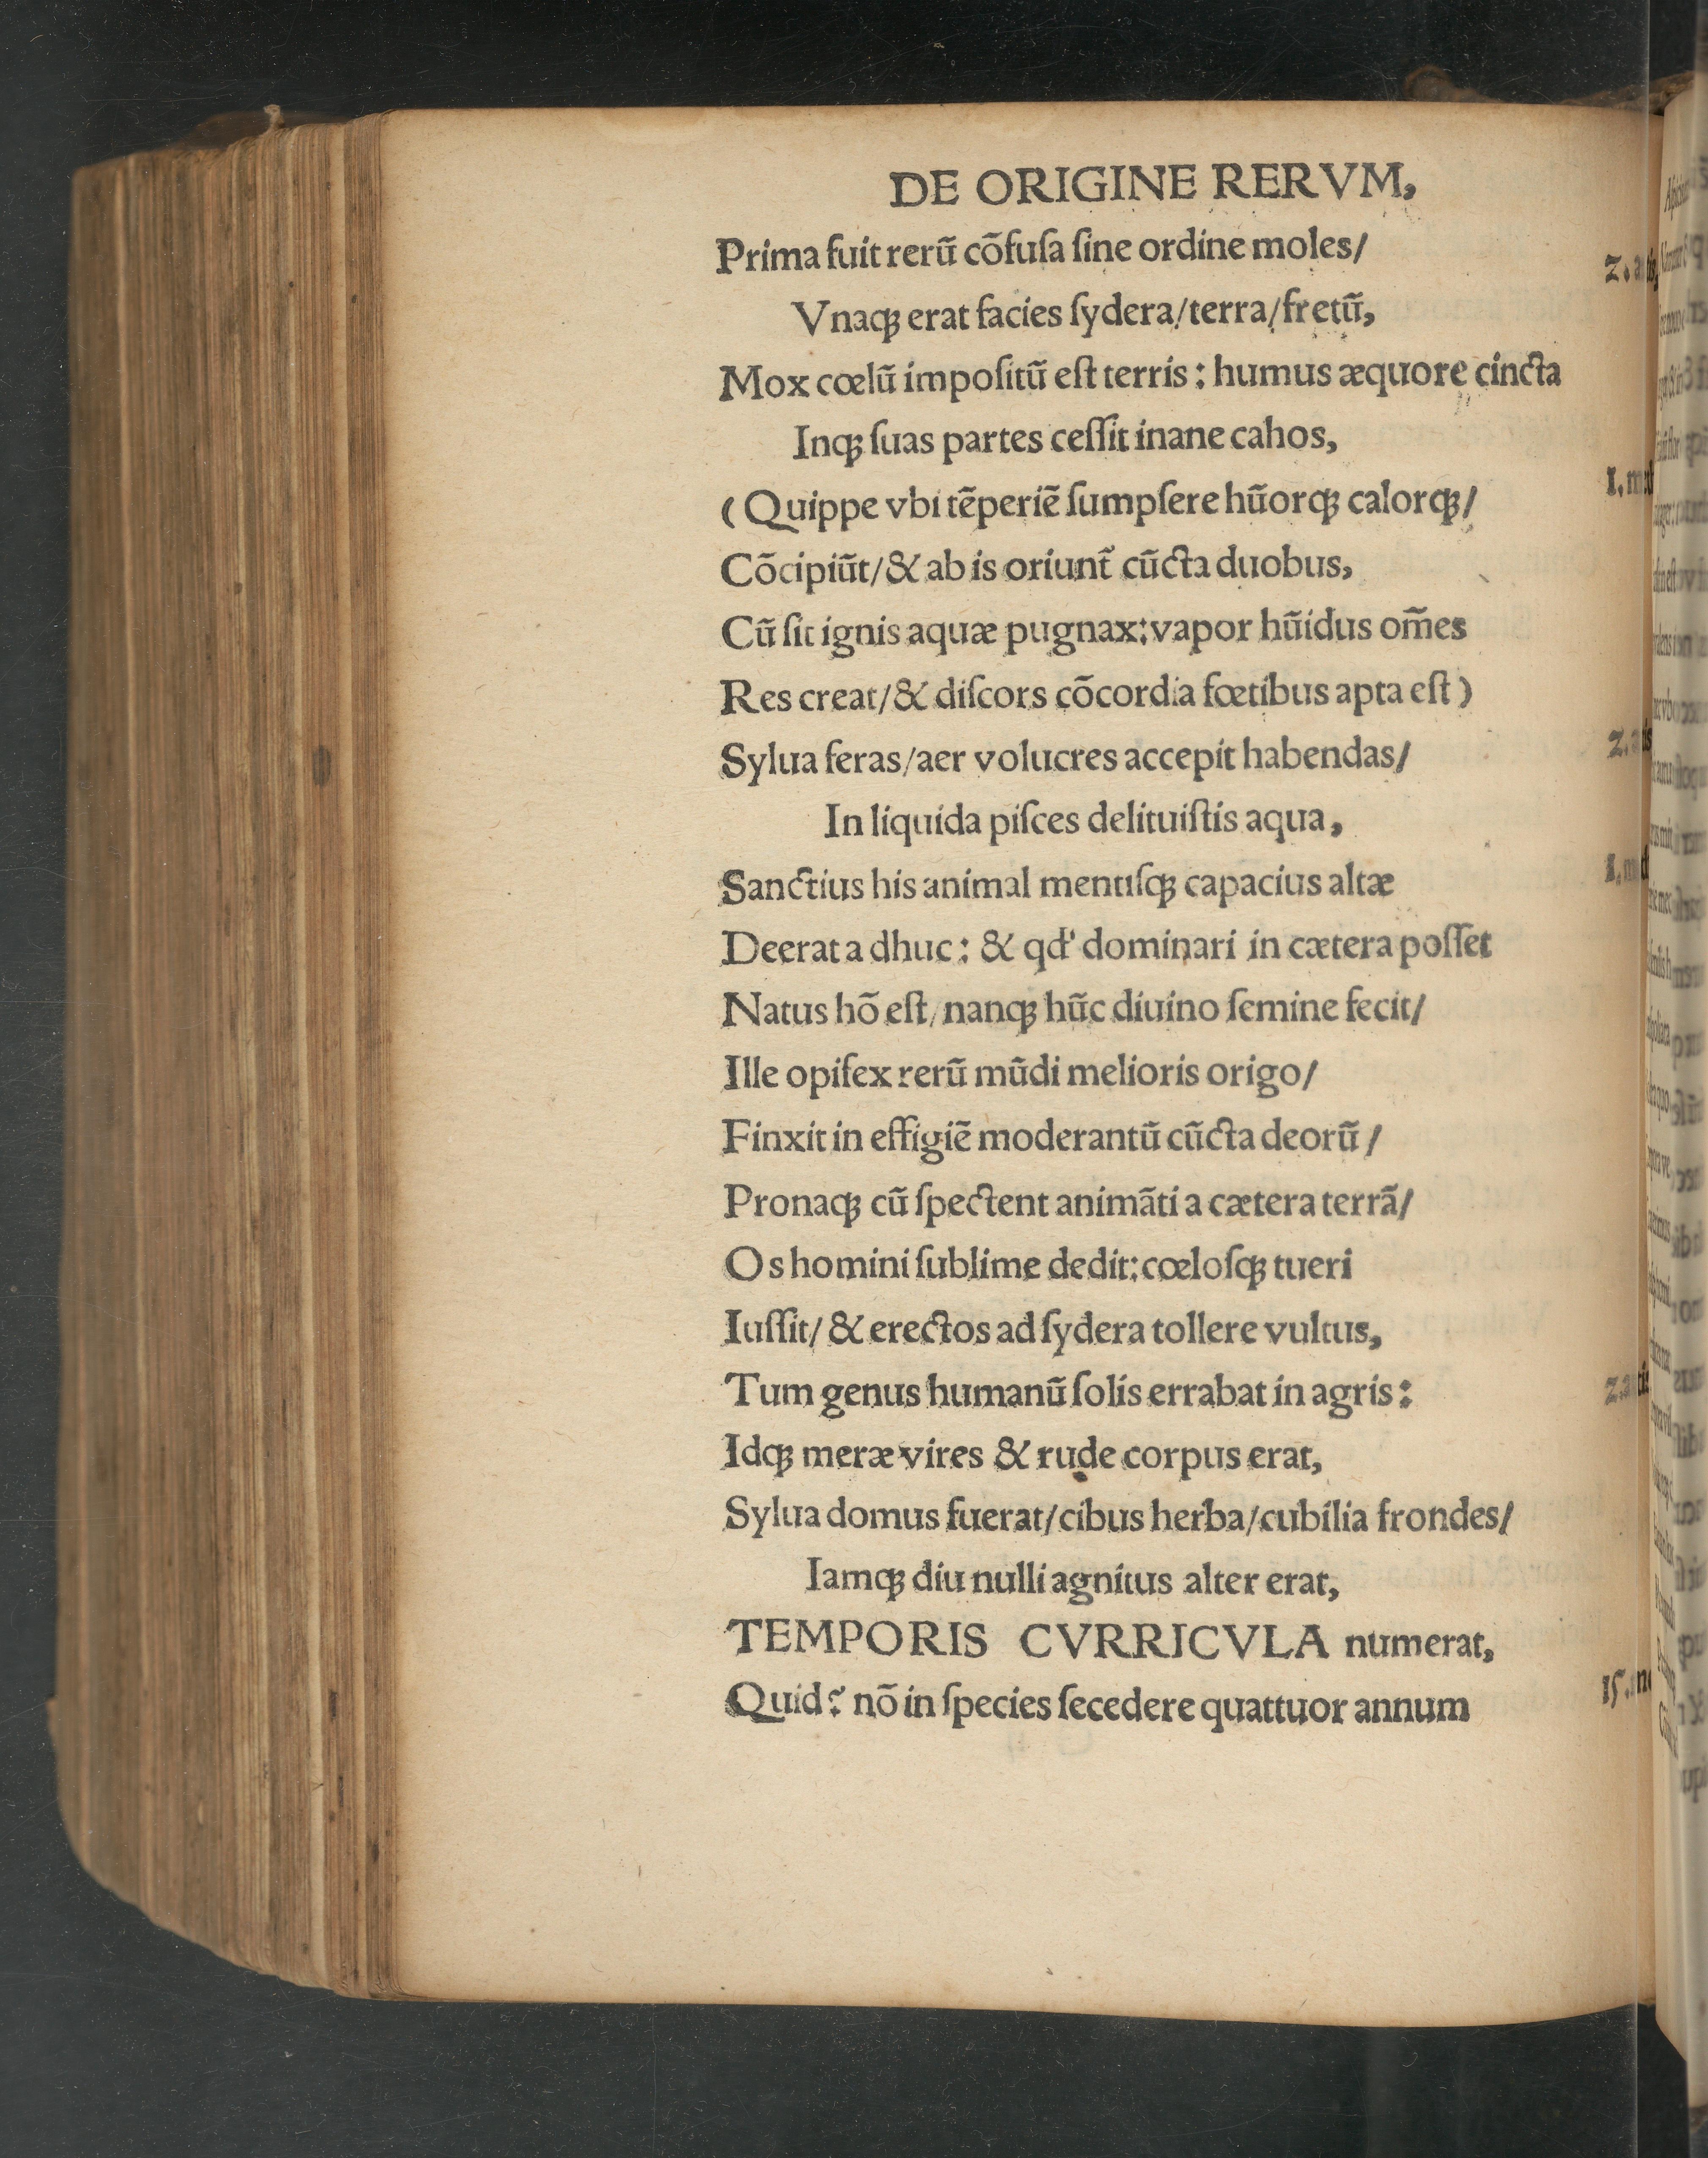 DE ORIGINE RERVM,
Prima fuit rerũ cõfuſa ſine ordine moles/
2. a
Vnaqꝫ erat facies ſydera/terra/fretũ,
Mox cœlũ impoſitũ eſt terris : humus æquore cincta
Inqꝫ ſuas partes ceſſit inane cahos,
1. m
(Quippe vbi tẽperiẽ ſumpſere hũorqꝫ calorqꝫ/
Cõcipiũt/& ab is oriunt̃ cũcta duobus,
Cũ ſit ignis aquæ pugnax:vapor hũidus om̃es
Res creat/& diſcors cõcordia fœtibus apta eſt)
2. a
Sylua feras/aer volucres accepit habendas/
In liquida piſces delituiſtis aqua,
1. m
Sanctius his animal mentiſqꝫ capacius altæ
Deerat a dhuc : & qd' dominari in cætera poſſet
Natus hõ eſt/nanqꝫ hũc diuino ſemine fecit/
Ille opifex rerũ mũdi melioris origo/
Finxit in effigiẽ moderantũ cũcta deorũ/
Pronaqꝫ cũ ſpectent animãti a cætera terrã/
Os homini ſublime dedit:cœloſqꝫ tueri
Iuſſit/& erectos ad ſydera tollere vultus,
2. a
Tum genus humanũ ſolis errabat in agris :
Idqꝫ meræ vires & rude corpus erat,
Sylua domus fuerat/cibus herba/cubilia frondes/
Iamqꝫ diu nulli agnitus alter erat,
TEMPORIS CVRRICVLA numerat,
15.
Quid? nõ in ſpecies ſecedere quattuor annum